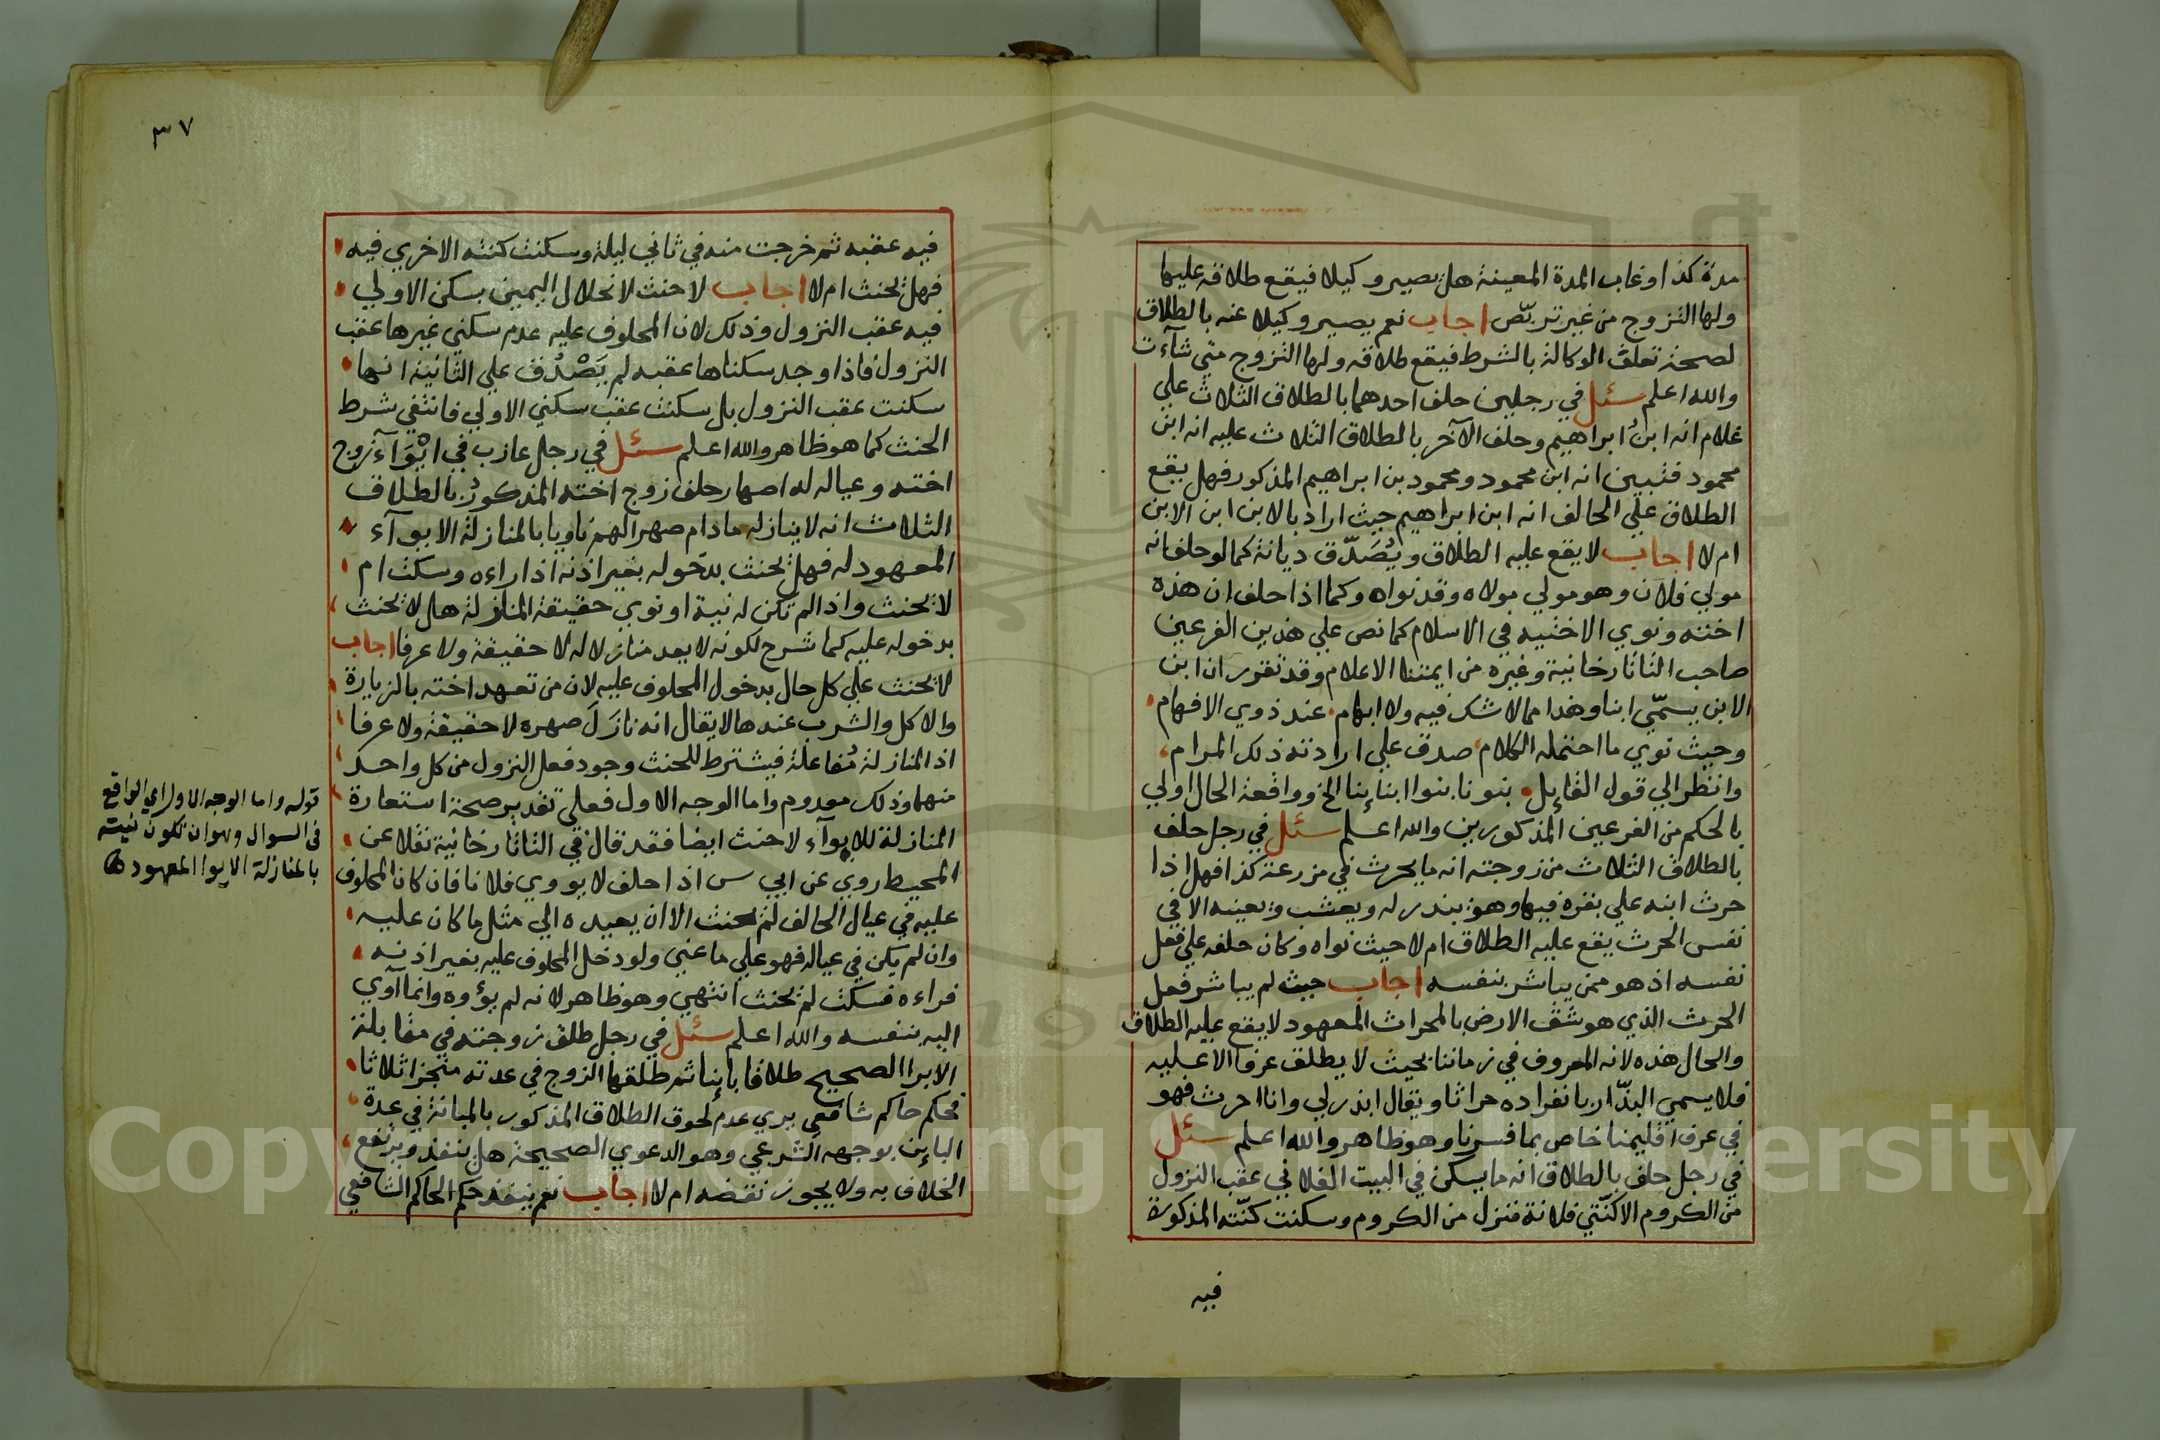 مدة كذا وغاب المدة المعينة هل يصير وكيلا فيقع طلاقه عليها
ولها التزوج من غير تربّص اجاب نعم يصير وكيلا عنه بالطلاق
لصحة تعلق الوكالة بالشرط فيقع طلاقه ولها التزوج متي شآءت
والله اعلم سئل في رجلين حلف احدهما بالطلاق الثلاث علي
غلام انه ابنُ ابراهيم وحلف الآخر بالطلاق الثلاث عليه انه ابن
محمود فتبين انه ابن محمود ومحمود بن ابراهيم المذكور فهل يقع
الطلاق علي الحالف انه ابن ابراهيم حيث اراد بالابن ابن الابن
ام لا اجاب لا يقع عليه الطلاق ويُصَدّق ديانة كما لو حلف انه
مولي فلان وهو مولي مولاه وقد نواه وكما اذا حلف ان هذه
اخته ونوي الاختيه في الاسلام كما نص علي هذين الفرعين
صاحب التاتارخانية وغيره من ايمتنا الاعلام وقد تقرر ان ابن
الابن يسمّي ابنا وهذا مما لا شك فيه ولا ابهام عند ذوي الافهام
وحيث نوي ما احتمله الكلام صدق علي ارادته ذلك المرام
وانظر الي قول القايل بنونا بنوا ابنائنا الخ وواقعة الحال اولي
بالحكم من الفرعين المذكورين والله اعلم سئل في رجل حلف
بالطلاق الثلاث من زوجته انه ما يحرث في مزرعة كذا فهل اذا
حرث ابنه علي بقره فيها وهو يبدر له ويعشب ويعينه الا في
نفس الحرث يقع عليه الطلاق ام لا حيث نواه وكان حلفه علي فعل
نفسه اذ هو ممن يباشر بنفسه اجاب حيث لم يباشر فعل
الحرث الذي هو شق الارض بالمحراث المعهود لا يقع عليه الطلاق
والحال هذه لانه المعروف في زماننا بحيث لا يطلق عرفا الا عليه
فلا يسمي البذّار بانفراده حراثا ويقال ابذر لي وانا احرث فهو
في عرف اقليمنا خاص بما فسرنا وهو ظاهر والله اعلم سئل
في رجل حلف بالطلاق انه ما يسكن في البيت الفلاني عقب النزول
من الكروم الا كنّتي فلانة فنزل من الكروم وسكنت كنّته المذكورة
فيه
٣٧
فيه عقبه ثم خرجت منه في ثاني ليلة وسكنت كنته الاخري فيه
فهل يحنث ام لا اجاب لا حنث لانحلال اليمين بسكن الاولي
فيه عقب النزول وذلك لان المحلوف عليه عدم سكني غيرها عقب
النزول فاذا وجد سكناها عقبه لم يَصْدُق علي الثانية انها
سكنت عقب النزول بل سكنت عقب سكني الاولي فانتفي شرط
الحنث كما هو ظاهر والله اعلم سئل في رجل عازب في ابْوَآء زوج
اخته وعياله له اصهار حلف زوج اخته المذكورُ بالطلاق
الثلاث انه لا ينازله ما دام صهرا لهم ناويا بالمنازلة الابوآء
المعهود له فهل يحنث بدخوله بغير اذنه اذا رآءه وسكت ام
لا يحنث واذا لم تكن له نية او نوي حقيقة المنازلة هل لا يحنث
بدخوله عليه كما شرح لكونه لا يعد منازلا له لا حقيقة ولا عرفا اجاب
لا يحنث علي كل حال بدخول المحلوف عليه لان من تعهد اخته بالزيارة
والاكل والشرب عندها لا يقال انه نازَلَ صهره لا حقيقة ولا عرفا
اذ المنازلة مُفاعلة فيشترط للحنث وجود فعل النزول من كل واحد
منهما وذلك معدوم واما الوجه الاول فعلي تقدير صحة استعارة
المنازلة للابوآء لا حنث ايضا فقد قال في التاتارخانية نقلا عن
المحيط روي عن ابي س اذا حلف لا يووي فلانا فان كان المحلوف
عليه في عيال الحالف لم يحنث الا ان يعيده الي مثل ما كان عليه
وان لم يكن في عياله فهو علي ما عني ولو دخل المحلوف عليه بغير اذنه
فراءه فسكت لم يحنث انتهي وهو ظاهر لانه لم يؤوه وانما آوي
اليه بنفسه والله اعلم سئل في رجل طلق زوجته في مقابلة
الابرا الصحيح طلاقا بائنا ثم طلقها الزوج في عدته منجزا ثلاثا
فحكم حاكم شافعي يري عدم لحوق الطلاق المذكور بالمبانة في عدة
الباين بوجهه الشرعي وهو الدعوي الصحيحة هل ينفذ ويرتفع
الخلاف به ولا يجوز نقضه ام لا اجاب نعم ينفذ حكم الحاكم الشافعي
قوله واما الوجه الاول اي الواقع
في السوال وهو ان تكون نيته
بالمنازلة الابوا المعهود
Copyright © King Saud University